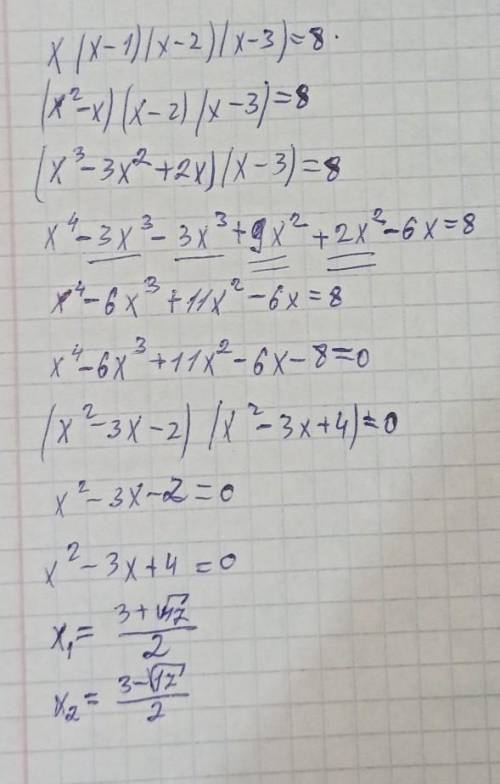 x(x-1)(x-2)(x-3)=8.
(x²-x)(x-2)(x-3)=8
(x³-3x²+2x)(x-3)=8
x⁴-3x³-3x³+9x²+2x²-6x=8
x⁴-6x³+11x²-6x=8
x⁴-6x³+11x²-6x-8=0
(x²-3x-2)(x²-3x+4)=0
x²-3x-2=0
x²-3x+4=0
x₁=(3+√17)/2
x₂=(3-√17)/2